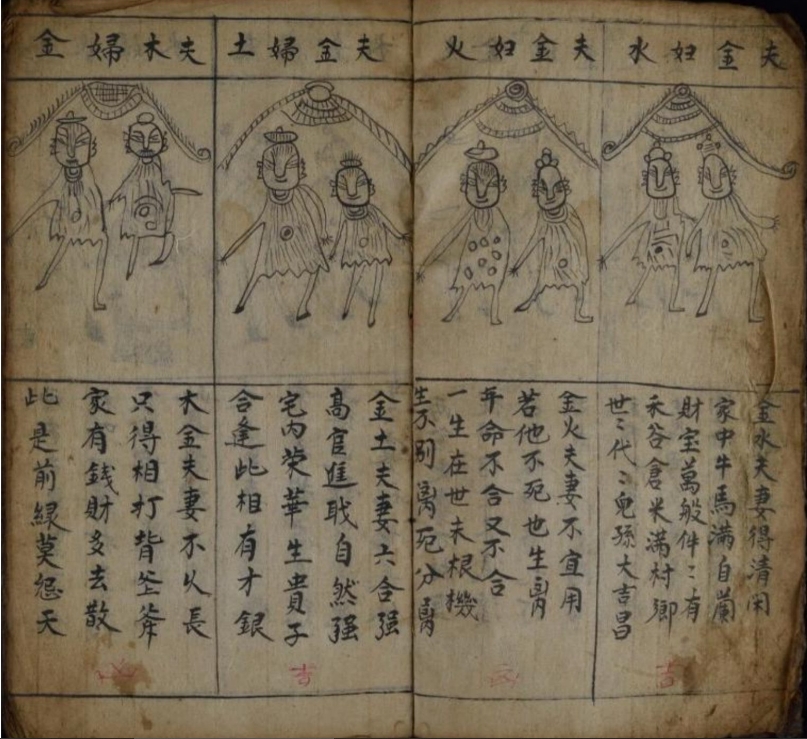 夫金妇水
金水夫妻得清闲
家中牛馬滿自蘭
財宝萬般件〻有
禾谷倉米滿村鄉
世〻代〻兒孫大吉昌
吉
夫金妇火
金火夫妻不宜用
若他不死也生离
年命不合又不合
一生在世未根機
生不别离死分离
凶
夫金婦土
金土夫妻六合强
高官進职自然强
宅内荣華生貴子
合逢此相有才銀
吉
夫木婦金
木金夫妻不久長
只得相打背斧
家有錢財多去散
此是前緣莫怨天
凶